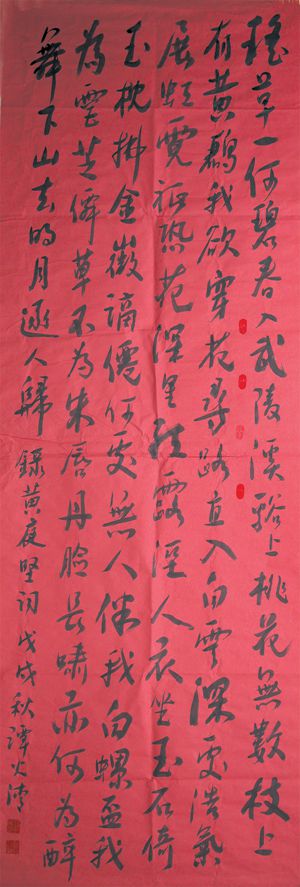 瑤草一何碧春入武陵溪谿上桃花無數枝上
有黃鸝我欲穿花尋路直入白雲深處浩氣
展虹霓祗恐花深里紅露溼人衣坐玉石倚
玉枕拂金徽謫僊何處無人伴我白螺盃我
為靈芝僊草不為朱唇丹臉長嘯亦何為醉
舞下山去明月逐人歸 錄黃庭堅詞 戊戌秋譚火